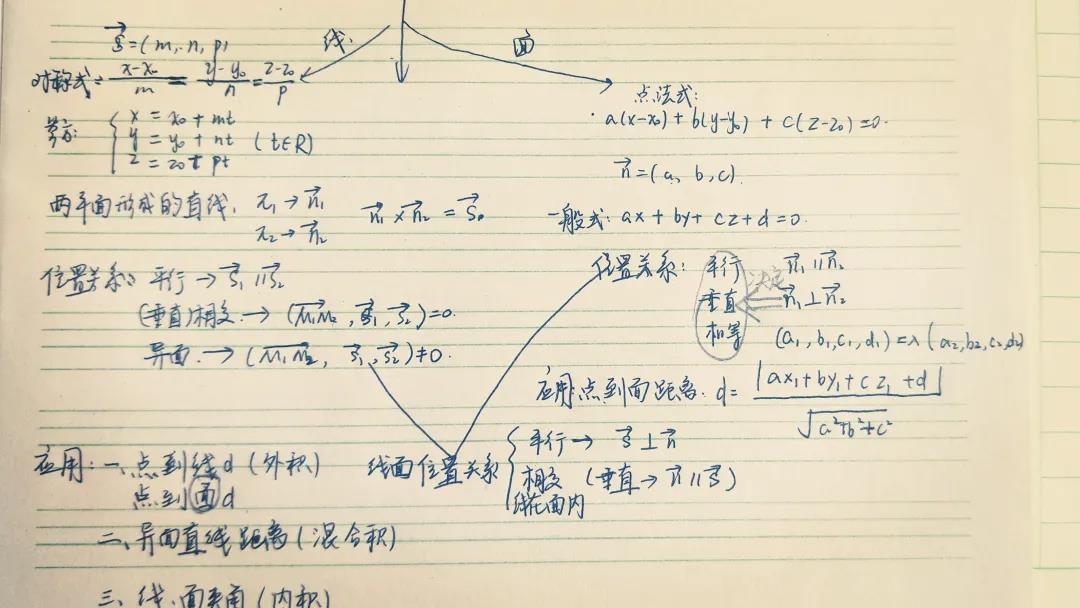 线.
面
s⃗=(m, n, p)
对称式: (x-x₀)/m = (y-y₀)/n = (z-z₀)/p
{ x = x₀ + mt
y = y₀ + nt (t∈R)
z = z₀ + pt
两平面形成的直线. π₁ → n⃗₁ n⃗₁ × n⃗₂ = s⃗.
π₂ → n⃗₂
位置关系: 平行 → s⃗₁ ∥ s⃗₂
(垂直)相交. → (M₁M₂, s⃗₁, s⃗₂)=0.
异面. → (M₁M₂, s⃗₁, s⃗₂)≠0.
点法式:
a(x-x₀) + b(y-y₀) + c(z-z₀)=0.
n⃗=(a, b, c)
一般式: ax + by + cz + d = 0.
位置关系: 平行 n⃗₁ ∥ n⃗₂
决定
垂直 n⃗₁ ⊥ n⃗₂
相等 (a₁, b₁, c₁, d₁) = λ(a₂, b₂, c₂, d₂)
应用: 点到面距离. d = |ax₁+by₁+cz₁+d| / √(a²+b²+c²)
线面位置关系 { 平行 → s⃗ ⊥ n⃗
相交 (垂直 → n⃗ ∥ s⃗)
线在面内
应用: 一、点到线d (外积)
点到面d
二、异面直线距离(混合积)
三、线.面夹角(内积)